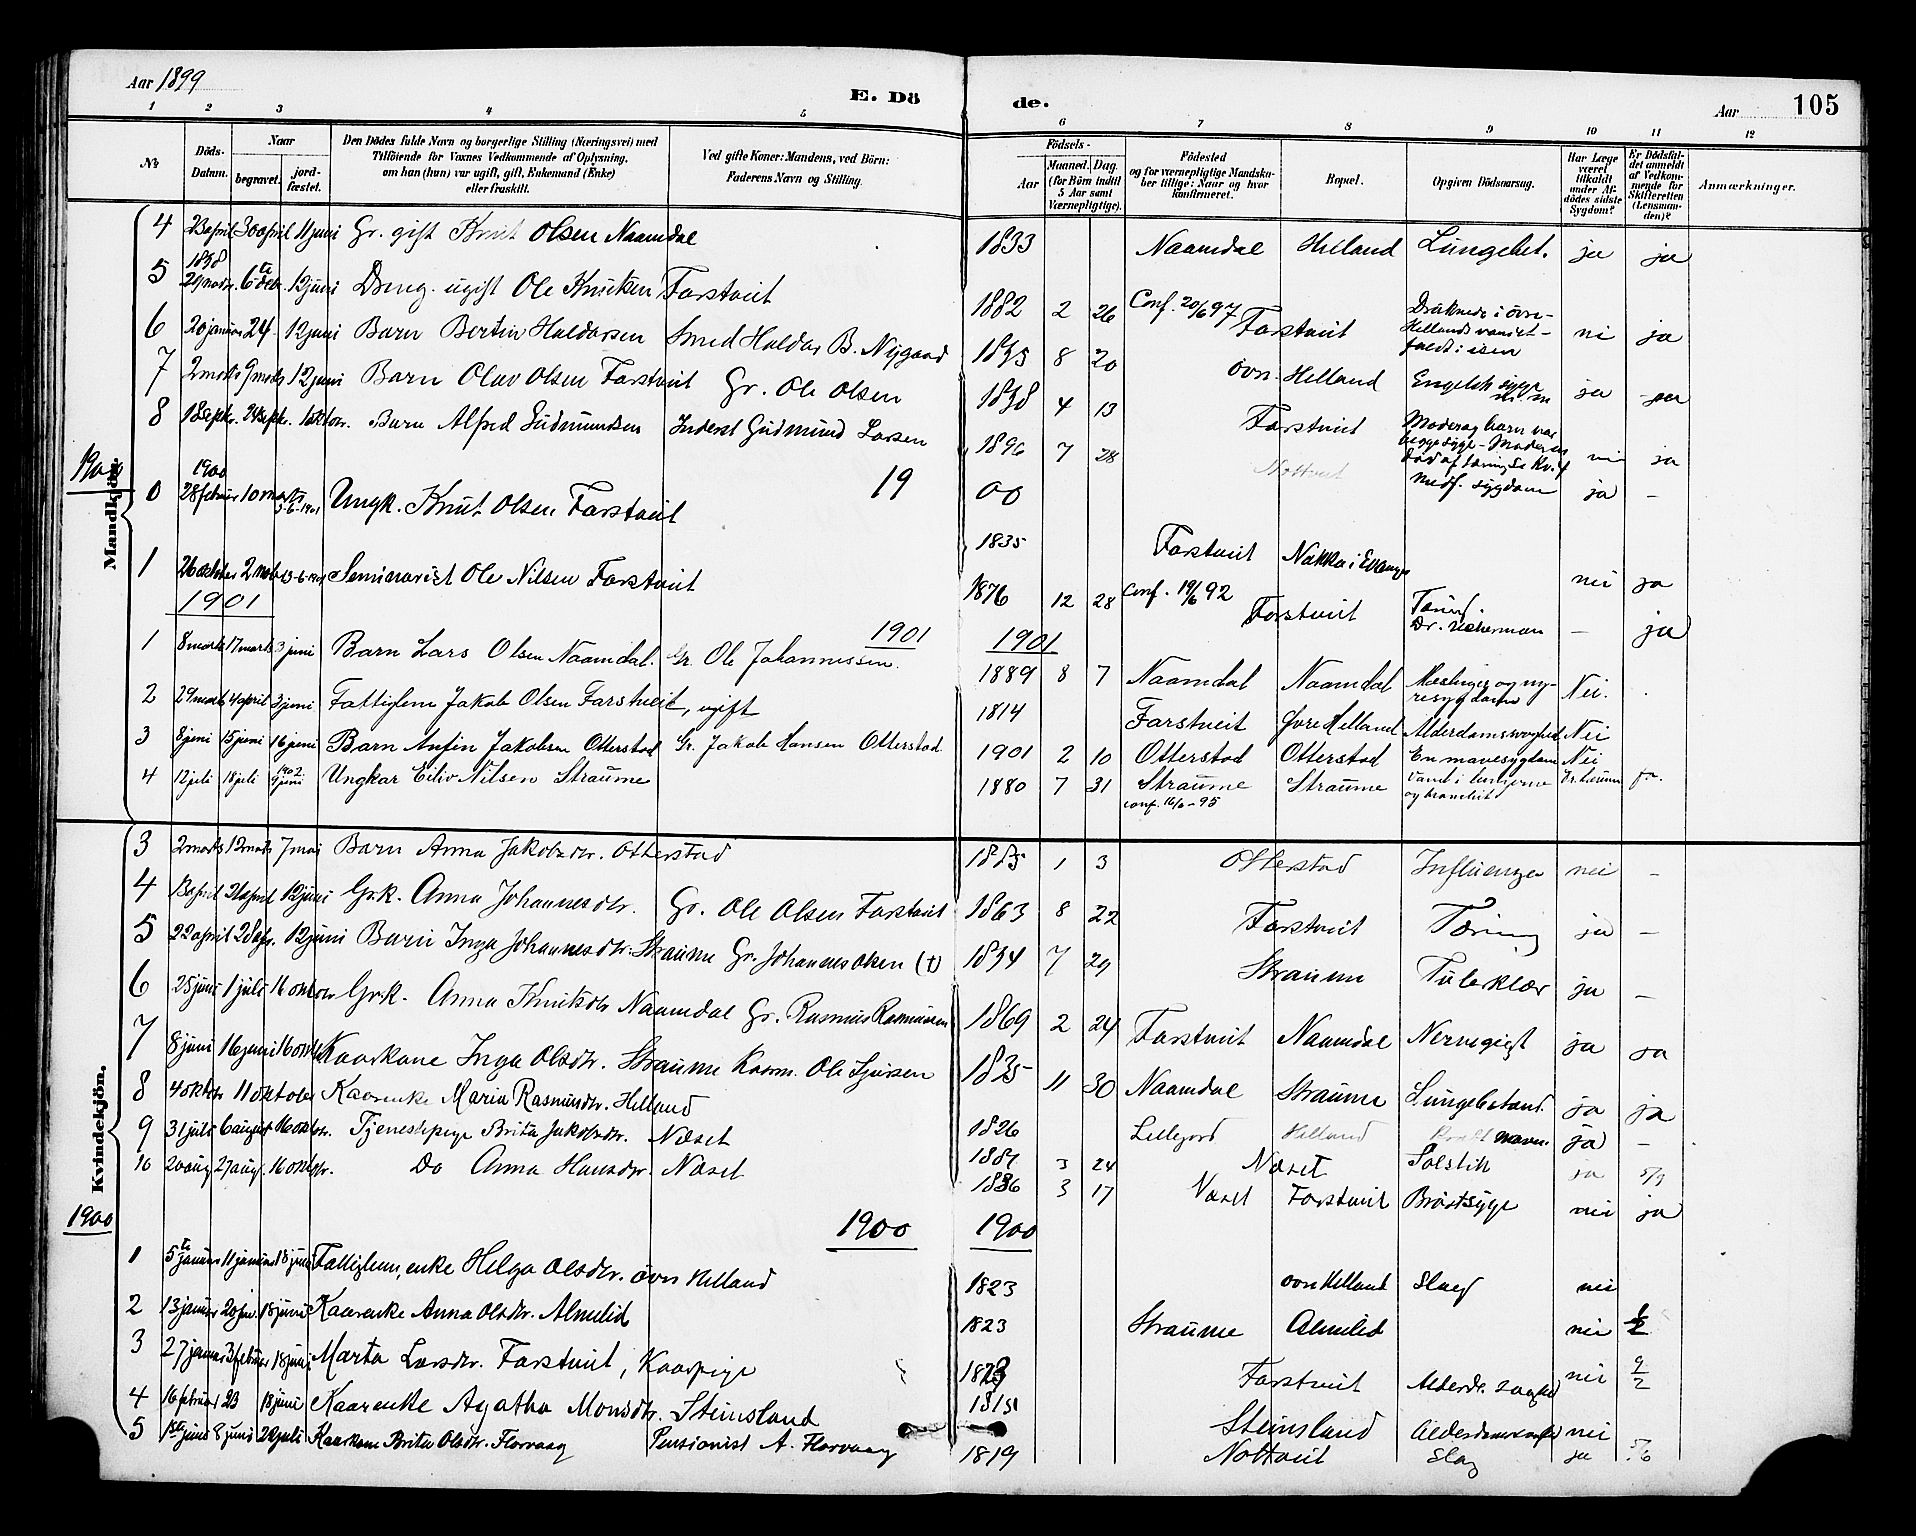 Aar 1899
E. Dö de.
Aar 105
1 2 3 4 5 6 7 8 9 10 11 12
No
Döds-Datum.
Naar begravet. jordfæstet.
Den Dödes fulde Navn og borgerlige Stilling (Næringsvei) med Tilföiende for Voxnes Vedkommende af Oplysning, om han (hun) var ugift, gift, Enkemand (Enke) eller fraskilt.
Ved gifte Koner: Mandens, ved Börn: Faderens Navn og Stilling.
Födsels-
Aar Maaned. Dag. (for Börn indtil 5 Aar samt Værnepligtige).
Födested og for værnepligtige Mandskaber tillige: Naar og hvor konfirmeret.
Bopæl.
Opgiven Dödsaarsag.
Har Læge været tilkaldt under Afdödes sidste Sygdom?
Er Dödsfaldet anmeldt af Vedkommende for Skifteretten (Lensmanden)?
Anmærkninger.
Mandkjön.
4 23 april 30 april 11 juni Gr. gift Knut Olsen Naamdal 1833 Naamdal Helland Lungebet. ja ja
5 1898 29 novbr. 6te debr. 12 juni Dreng. ugift Ole Knutsen Farstveit 1882 2 26 Conf. 20/6 97 Farstveit Druknede i övre Hellands vaniet - faldt i isen nei ja
6 20 januar 24 12 juni Barn Bertin Haldorsen Smed Haldor B. Nygaard 1895 8 20 övr. Helland Engelsk syge ja
7 2 marts 9 marts 12 juni Barn Olav Olsen Farstveit Gr. Ole Olsen 1898 4 13 Farstveit Moder og barn var begge syge - Moderen död af tæring nei ja
8 18 septr. 24 septr. 1 oktobr. Barn Alfred Gudmundsen Inderst Gudmund Larsen 1896 7 28 Nottveit Medf. sygdom ja -
1900 19 00
0 1900 28 februar 10 marts 3-6-1901 Ungk. Knut Olsen Farstveit 1835 Farstveit Nakka i Evanger nei ja
1 26 oktober 2 novb 3-6-1901 Seminarist Ole Nilsen Farstveit 1876 12 28 Conf. 19/6 92 Farstveit Tæring. Dr. Uckerman - ja
1901 1901 1901
1 8 marts 17 marts 3 juni Barn Lars Olsen Naamdal. Gr. Ole Johannessen. 1889 8 7 Naamdal Naamdal Mæslinger og nyresygdom Nei.
2 29 marts 4 april 3 juni Fattiglem Jakob Olsen Farstveit, ugift 1814 Farstveit Övre Helland Alderdomssvaghed Nei
3 8 juni 15 juni 16 juni Barn Anfin Jakobsen Otterstad Gr. Jakob Hansen Otterstad 1901 2 10 Otterstad Otterstad En mavesygdom Nei
4 12 juli 18 juli 1902 9 juni Ungkar Eiliv Nilsen Straume 1880 7 31 Straume conf. 16/6-95 Straume Vand i lungerne og brandeit ja.
Kvindekjön.
3 2 marts 12 marts 7 mai Barn Anna Jakobsdtr. Otterstad 1885 1 3 Otterstad Influenza nei -
4 13 april 21 april 12 juni Grk. Anna Johannesdtr. Gr. Ole Olsen Farstveit 1863 8 22 Farstveit Tæring ja -
5 22 april 28 apr. 12 juni Barn Inga Johannesdtr. Straume Gr. Johannes Olsen (†) 1894 7 29 Straume Tuberkler ja -
6 25 juni 1 juli 16 oktobr Grk. Anna Knutsdtr Naamdal Gr. Rasmus Rasmussen 1869 2 24 Farstveit Naamdal Nervegigt ja ja
7 8 juni 16 juni 16 oktbr Kaarkone Inga Olsdtr. Straume Kaarm. Ole Sjursen 1835 11 30 Naamdal Straume Lungebetænd. ja ja
8 4 oktbr 11 oktober Kaarenke Maria Rasmusdtr. Helland 1826 Lillejord Helland Kræft maven. ja -
9 31 juli 6 august 16 oktbr. Tjenestepige Brita Jakobsdtr. Næset 1881 3 24 Næset Solstik ja 5/9
10 20 aug 27 aug. 16 oktbr. Do Anna Hansdtr. Næset 1836 3 17 Næset Farstveit Brystsyge nei ja
1900 1900 1900
1 5te januar 11 januar 18 juni Fattiglem, enke Helga Olsdtr. övr Helland 1823 övre Helland Slag nei
2 13 januar 20 jan. 18 juni Kaarenke Anna Olsdtr. Almelid 1823 Straume Almelid nei 1/2
3 27 januar 3 februar 18 juni Marta Larsdtr. Farstveit, Kaarpige 1823 Farstveit Alderd. svaghed nei 9/2
4 16 februar 23 18 juni Kaarenke Agatha Monsdtr. Steinsland 1815 Steinsland Alderdomssvaghed nei
5 1ste juni 8 juni 22 juli Kaarkone Brita Olsdtr. Florvaag Pensionist A. Florvaag 1819 Nottveit Slag ja 5/6